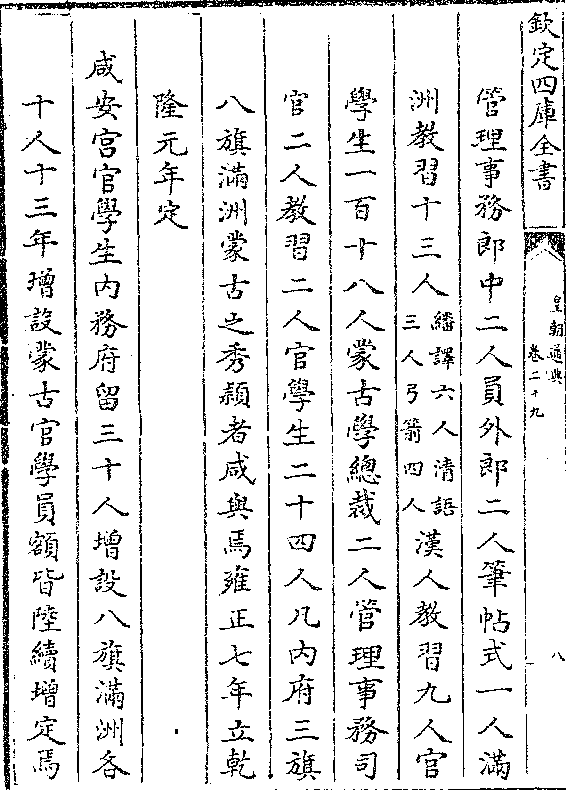 欽定四庫全書
皇朝通典
卷二十九
八
管理事務郎中二人員外郎二人筆帖式一人滿
洲教習十三人繙譯六人清語三人弓箭四人漢人教習九人官
學生一百十八人蒙古學總裁二人管理事務司
官二人教習二人官學生二十四人凡内府三旗
八旗滿洲蒙古之秀頴者咸與焉雍正七年立乾
隆元年定
咸安宮官學生内務府留三十人增設八旗滿洲各
十人十三年增設蒙古官學員額皆陸續增定焉